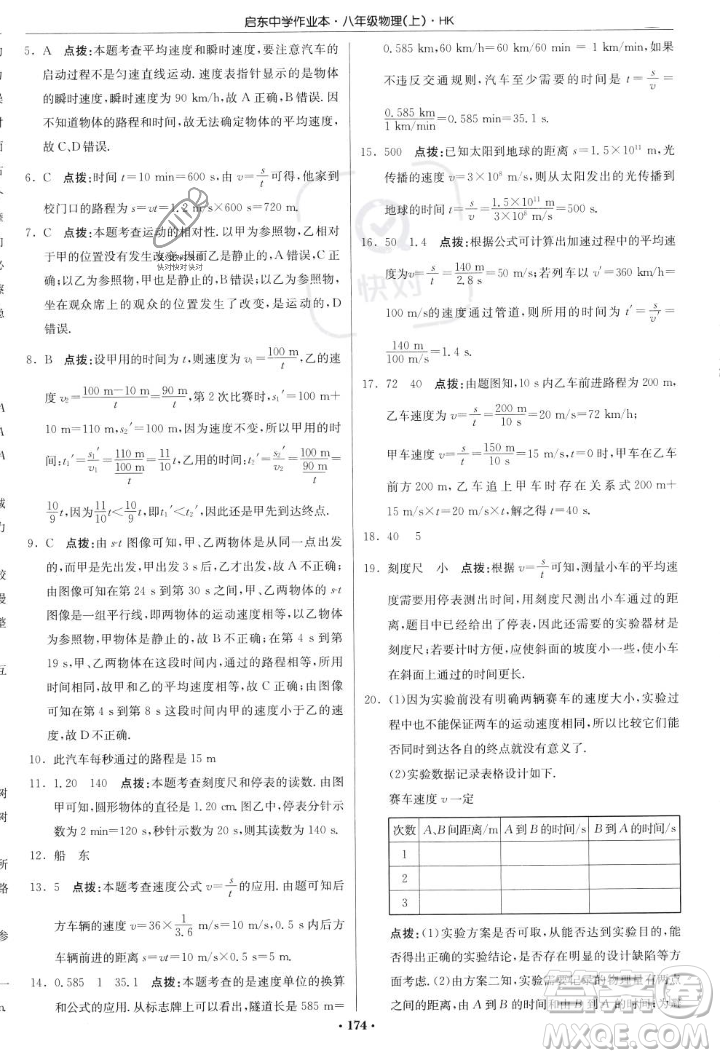 启东中学作业本·八年级物理(上)·HK
5. A 点拨:本题考查平均速度和瞬时速度.要注意汽车的
启动过程不是匀速直线运动.速度表指针显示的是物体
的瞬时速度,瞬时速度为 90 km/h,故 A 正确,B 错误.因
不知道物体的路程和时间,故无法确定物体的平均速度,
故 C、D 错误.
6. C 点拨:时间 t=10 min=600 s,由 v=s/t 可得,他家到
校门口的路程为 s=vt=1.2 m/s×600 s=720 m.
7. C 点拨:本题考查运动的相对性.以甲为参照物,乙相对
于甲的位置没有发生改变,因而乙是静止的,A、B、C 正
确;以乙为参照物,甲也是静止的,C 正确;以甲为参照物,
坐在观众席上的观众的位置发生了改变,是运动的,D
错误.
8. B 点拨:设甲用的时间为 t,则甲的速度 v₁=100 m/t,乙的速
度 v₂=(100 m−10 m)/t=90 m/t,第 2 次比赛时,s₁′=100 m+
10 m=110 m,s₂′=100 m,因为速度不变,所以甲用的时
间:t₁′=s₁′/v₁=110 m/(100 m/t)=11/10 t;乙用的时间:t₂′=s₂′/v₂=100 m/(90 m/t)=
10/9 t,因为 11/10 t<10/9 t,即:t₁′<t₂′,所以还是甲先到达终点.
9. C 点拨:由 s-t 图像可知,甲、乙两物体是从同一点出发
的,而且甲是先出发,甲出发 3 s 之后乙才出发,故 A 不
正确;甲、乙两物体在第 24 s 到第 30 s 之间对应的 s-t
图像是一组平行线,即两物体的运动速度相等,所以以乙
为参照物,甲物体是静止的,故 B 不正确;在第 15 s 到第
19 s,甲、乙两物体在这段时间内,乙通过的路程比甲的
长,所以甲的速度比乙的速度小,故 C 正确;甲、乙两物
体在第 4 s 到第 8 s 这段时间内,甲是运动的,乙也是运
动的,故 D 不正确.
10. 此汽车每秒通过的路程是 15 m
11. 1.20 140 点拨:本题考查刻度尺和停表的读数.由图
甲可知,圆形物体的直径是 1.20 cm.图乙中,分针示数
为 2 min=120 s,秒针示数为 20 s,停表的读数为 140 s.
12. 船 东
13. 5 点拨:本题考查速度公式 v=s/t 的应用.由题可知后
方车辆的速度为 v=36×1/3.6 m/s=10 m/s,0.5 s 内后
方车辆运动的距离为 s=vt=10 m/s×0.5 s=5 m.
14. 0.585 1 35.1 点拨:本题考查的是速度单位的换算
和公式的应用.从标志牌上可以了解到,隧道长是 585 m=
0.585 km,60 km/h=1 km/min.由 v=s/t 得,如果
不违反交通规则,汽车至少需要的时间是 t=s/v=
0.585 km/(1 km/min)=35.1 s.
15. 500 点拨:已知太阳到地球的距离 s=1.5×10¹¹ m,光
传播的速度 v=3×10⁸ m/s,则从太阳发出的光传播到
地球的时间:t=s/v=1.5×10¹¹ m/(3×10⁸ m/s)=500 s.
16. 50 1.4 点拨:根据公式可计算出加速过程中的平均速
度为 v=s/t=140 m/2.8 s=50 m/s;若列车以 v′=360 km/h=
100 m/s 的速度通过管道,则通过时间为 t′=s/v′=
140/100 m/s=1.4 s.
17. 72 40 点拨:由题图知,10 s 内乙车前进路程为 200 m,
乙车速度为 v=s/t=200 m/10 s=20 m/s=72 km/h;
甲车速度为 v=s/t=150 m/10 s=15 m/s,t=0 时,甲车在乙车
前方 200 m,乙车追上甲车时存在关系式 200 m+
15 m/s×t=20 m/s×t,解得 t=40 s.
18. 40 5
19. 刻度尺 小 点拨:根据 v=s/t 可知,测量小车的平均速
度需要用停表测出时间,用刻度尺测出对应的路程.由
于题目中已经给出了停表,所以还需要的实验器材是
刻度尺;若要计时方便,应使斜面的坡度小一些,使小车
在斜面上运动时间更长.
20. (1)因为实验前没有明确两辆赛车的速度大小,实验过
程中也不能保证两车的运动速度是相同的,所以时间是
否相同就没有意义了.
(2)实验数据记录表格设计如下.
赛车速度 v 一定
次数 A、B 间距离/m A 到 B 的时间/s B 到 A 的时间/s
1
2
点拨:(1)实验方案是否可取,从能否保证实验成功,能
否得出正确的实验结论,是否存在明显的设计缺陷等方
面去考虑.(2)由方案二知,需要测量的物理量有两点
之间的距离,由 A 到 B 的时间和由 B 到 A 的时间,为避
·174·
快对快对快对
快对